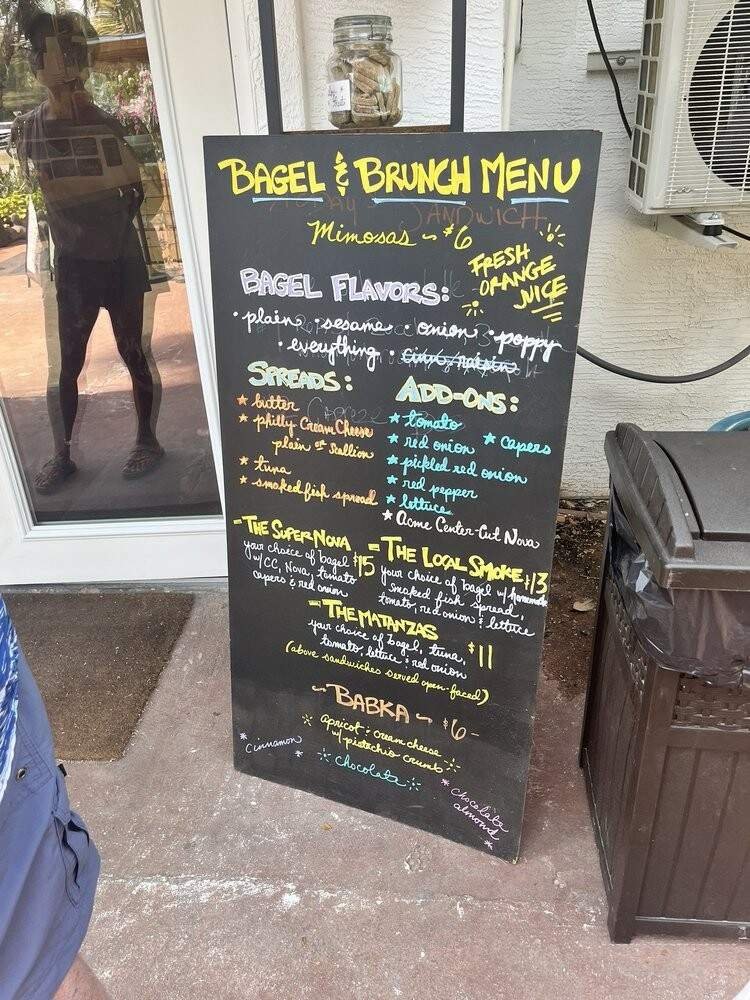 BAGEL & BRUNCH MENU
Mimosas ~ $6
FRESH
ORANGE
JUICE
BAGEL FLAVORS:
• plain • sesame • onion • poppy
• everything • cinn/raisin
SPREADS:
* butter
* philly Cream Cheese
plain or scallion
* tuna
* smoked fish spread
ADD-ONS:
* tomato
* red onion * capers
* pickled red onion
* red pepper
* lettuce
* Acme Center-Cut Nova
- THE SUPER NOVA
your choice of bagel $15
w/ CC, Nova, tomato
capers & red onion
- THE LOCAL SMOKE $13
your choice of bagel w/ homemade
smoked fish spread,
tomato, red onion & lettuce
- THE MATANZAS
your choice of bagel, tuna, $11
tomato, lettuce & red onion
(above sandwiches served open-faced)
~ BABKA ~ $6 -
apricot & cream cheese
w/ pistachio crumb
* Cinnamon *
chocolate
* chocolate
almond *